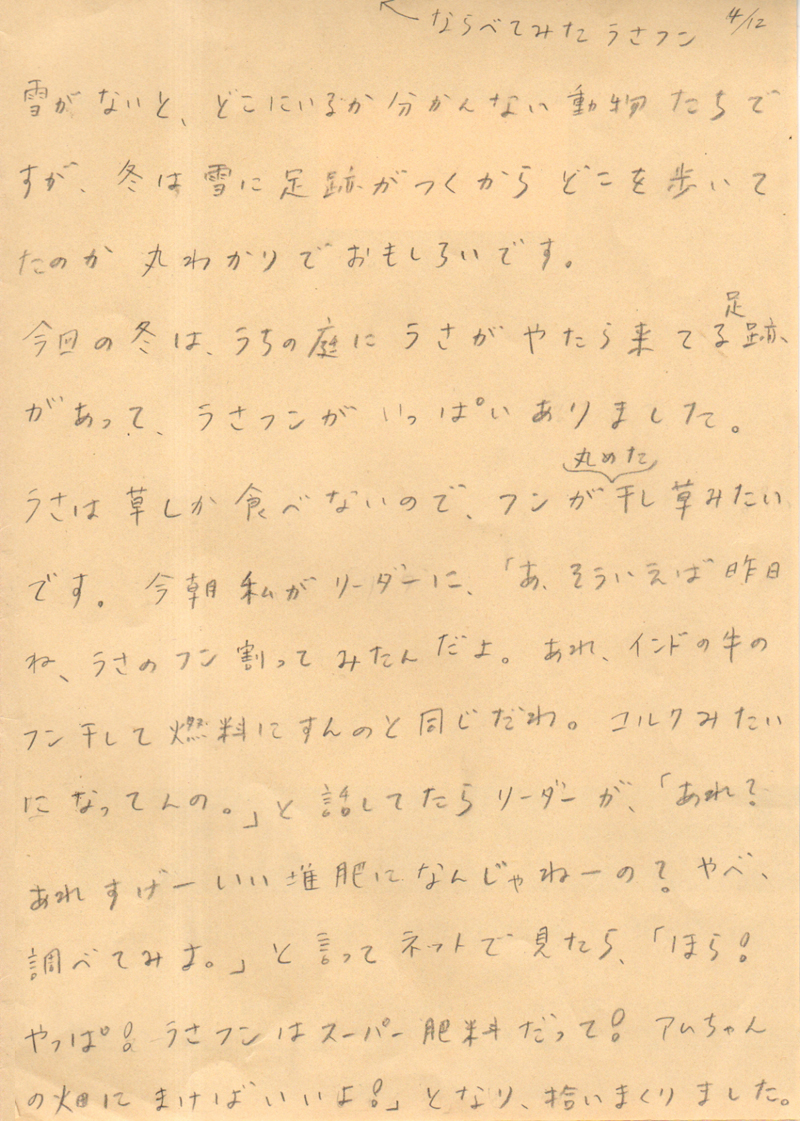 ←ならべてみたうさフン 4/12
雪がないと、どこにいるか分かんない動物たちで
すが、冬は雪に足跡がつくからどこを歩いて
たのか丸わかりでおもしろいです。
今回の冬は、うちの庭にうさがやたら来てる足跡
があって、うさフンがいっぱいありました。
丸めた
うさは草しか食べないので、フンが干し草みたい
です。今朝私がリーダーに、「あ、そういえば昨日
ね、うさのフン割ってみたんだよ。あれ、インドの牛の
フン干して燃料にすんのと同じだわ。コルクみたい
になってんの。」と話してたらリーダーが、「あれ?
あれすげーいい堆肥になんじゃねーの?やべ、
調べてみよ。」と言ってネットで見たら、「ほら!
やっぱ!うさフンはスーパー肥料だって!アムちゃん
の畑にまけばいいよ!」となり、拾いまくりました。